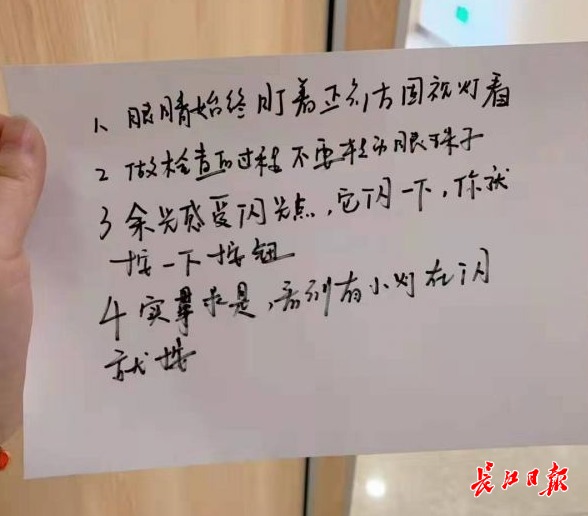 1、眼睛始终盯着正前方固视灯看
2 做检查的过程不要转动眼珠子
3 余光感受闪光点，它闪一下，你就
按一下按钮
4 实事求是，看到有小灯在闪
就按
长江日报